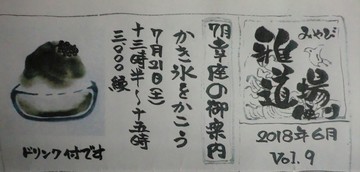 みやび
雅道場
便り
2018年6月
Vol.9
7月幸座の御案内
かき氷をかこう
7月21日(土)
十三時半〜十五時
三000縁
ドリンク付です